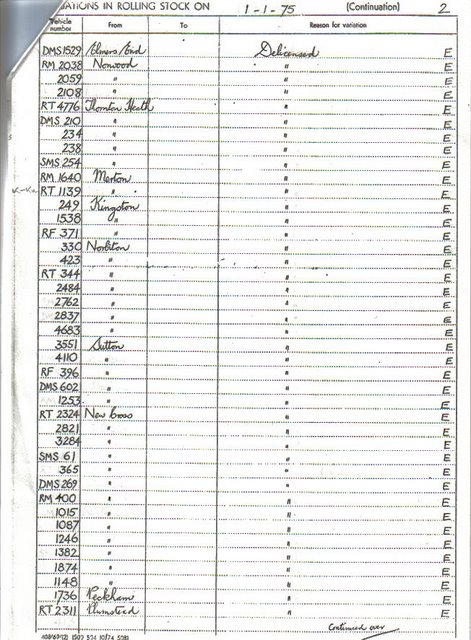 ATIONS IN ROLLING STOCK ON 1-1-75 (Continuation) 2
Vehicle number From To Reason for variation
DMS 1529 Elmers End Delicensed E
RM 2038 Norwood " E
2059 " " E
2108 " " E
RT 4776 Thornton Heath " E
DMS 210 " " E
234 " " E
238 " " E
SMS 254 " " E
RM 1640 Merton " E
RT 1139 " " E
249 Kingston " E
1538 " " E
RF 371 " " E
330 Norbiton " E
423 " " E
RT 344 " " E
2484 " " E
2762 " " E
2837 " " E
4683 " " E
3551 Sutton " E
4110 " " E
RF 396 " " E
DMS 602 " " E
1253 " " E
RT 2324 New Cross " E
2821 " " E
3284 " " E
SMS 61 " " E
365 " " E
DMS 269 " " E
RM 400 " " E
1015 " " E
1087 " " E
1246 " " E
1382 " " E
1874 " " E
1148 " " E
1736 Peckham " E
RT 2311 Plumstead " E
Continued over